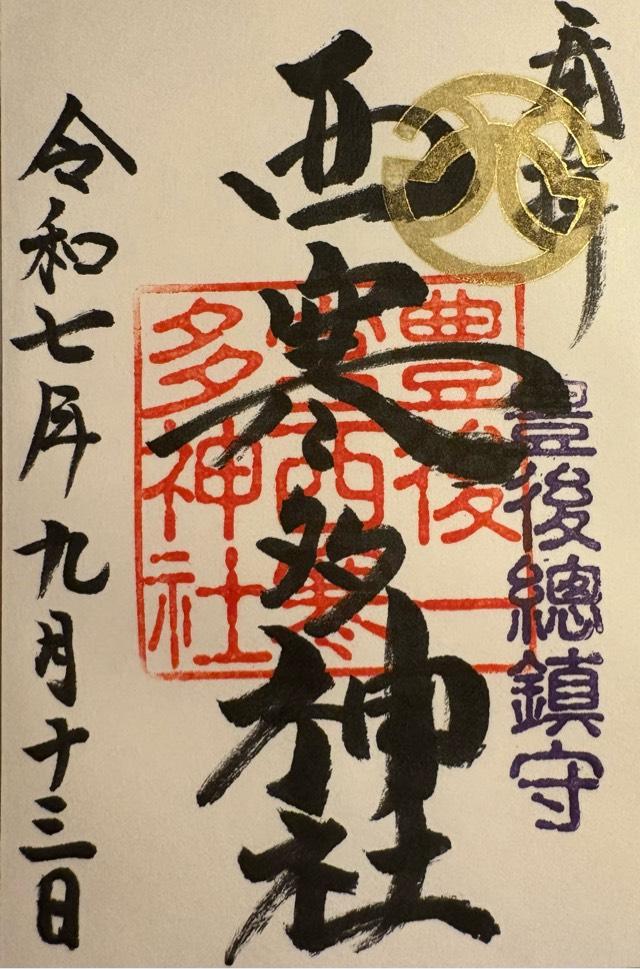 奉拝
豊後總鎮守
西寒多神社
豊後一
宮西寒
多神社
令和七年九月十三日